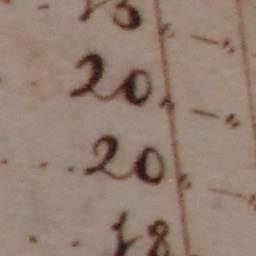 13 „ — „
20 „ — „
20 „ — „
18